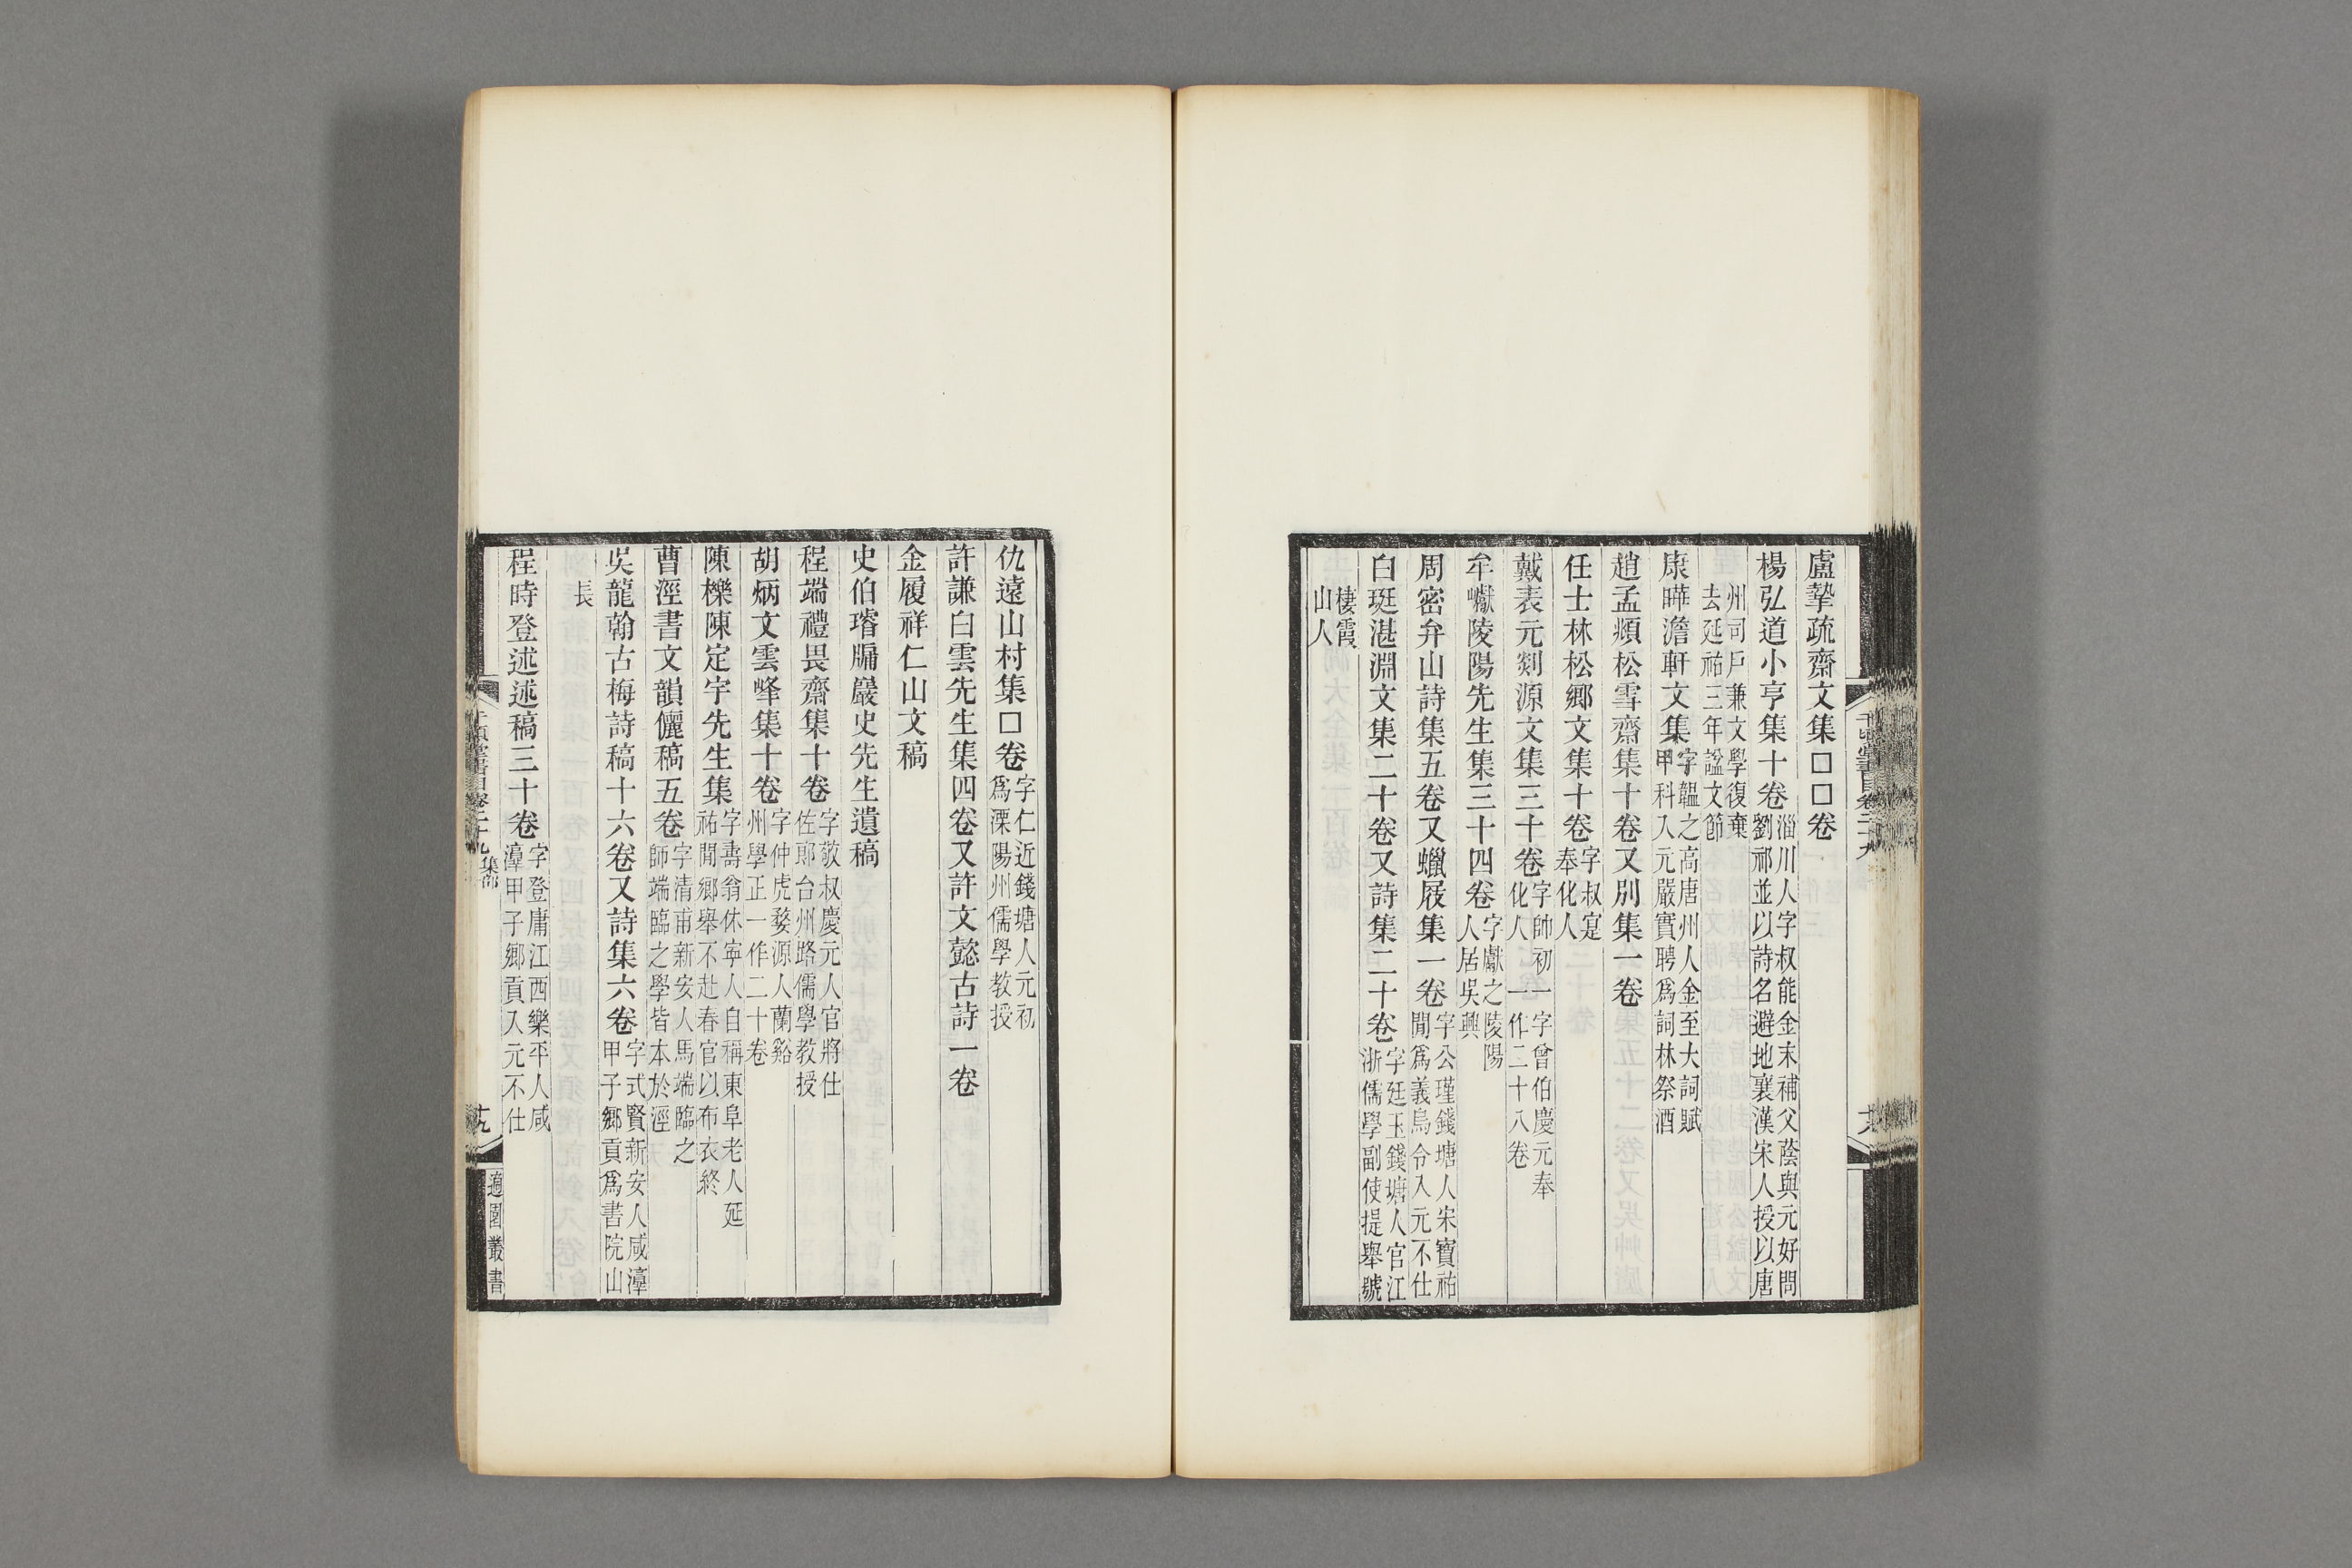 盧摯疏齋文集□□卷
楊弘道小亨集十卷淄川人字叔能金末補父蔭與元好問
劉祁並以詩名避地襄漢宋人授以唐
州司戶兼文學復棄
去延祐三年諡文節
康曄澹軒文集字韞之高唐州人金至大詞賦
甲科入元嚴實聘爲詞林祭酒
趙孟頫松雪齋集十卷又別集一卷
任士林松鄉文集十卷字叔寔
奉化人
戴表元剡源文集三十卷字帥初一字曾伯慶元奉
化人一作二十八卷
牟巘陵陽先生集三十四卷字獻之陵陽
人居吳興
周密弁山詩集五卷又蠟屐集一卷字公瑾錢塘人宋寶祐
閒爲義烏令入元不仕
白珽湛淵文集二十卷又詩集二十卷字廷玉錢塘人官江
浙儒學副使提舉號
棲霞
山人
仇遠山村集□卷字仁近錢塘人元初
爲溧陽州儒學教授
許謙白雲先生集四卷又許文懿古詩一卷
金履祥仁山文稿
史伯璿牖巖史先生遺稿
程端禮畏齋集十卷字敬叔慶元人官將仕
佐郎台州路儒學教授
胡炳文雲峰集十卷字仲虎婺源人蘭谿
州學正一作二十卷
陳櫟陳定宇先生集字壽翁休寧人自稱東阜老人延
祐閒鄉舉不赴春官以布衣終
曹涇書文韻儷稿五卷字清甫新安人馬端臨之
師端臨之學皆本於涇
吳龍翰古梅詩稿十六卷又詩集六卷字式賢新安人咸漳
甲子鄉貢爲書院山
長
程時登述述稿三十卷字登庸江西樂平人咸
漳甲子鄉貢入元不仕
集部
適園叢書